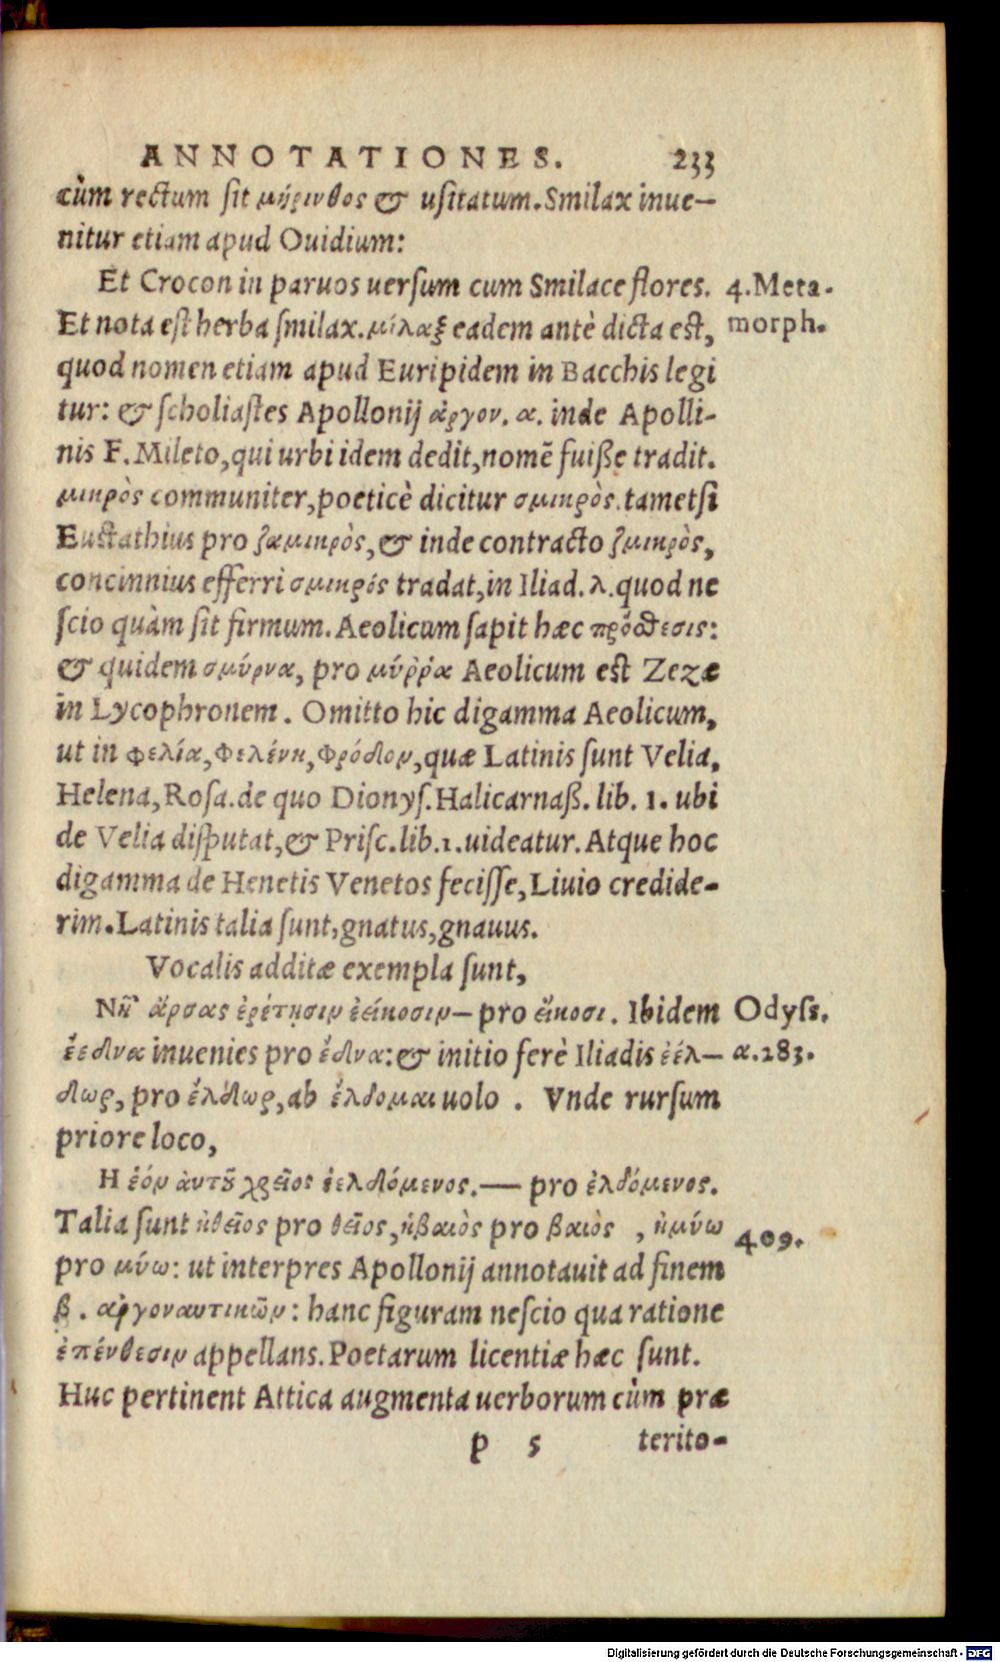 ANNOTATIONES. 233
cùm rectum sit μήρινθος & usitatum. Smilax inue-
nitur etiam apud Ouidium:
Et Crocon in paruos uersum cum Smilace flores. 4. Meta-
Et nota est herba smilax. μίλαξ eadem antè dicta est, morph.
quod nomen etiam apud Euripidem in Bacchis legi
tur: & scholiastes Apollonij ἀργον. α. inde Apolli-
nis F. Mileto, qui urbi idem dedit, nomẽ fuisse tradit.
μικρὸς communiter, poeticè dicitur σμικρὸς. tametsi
Eustathius pro ζαμικρὸς, & inde contracto ζμικρὸς,
concinnius efferri σμικρός tradat, in Iliad. λ. quod ne
scio quàm sit firmum. Aeolicum sapit hæc πρόσθεσις:
& quidem σμύρνα, pro μύῤῥα Aeolicum est Zezæ
in Lycophronem. Omitto hic digamma Aeolicum,
ut in φελία, φελένη, φρόδον, quæ Latinis sunt Velia,
Helena, Rosa. de quo Dionys. Halicarnaß. lib. 1. ubi
de Velia disputat, & Prisc. lib. 1. uideatur. Atque hoc
digamma de Henetis Venetos fecisse, Liuio credide-
rim. Latinis talia sunt, gnatus, gnauus.
Vocalis additæ exempla sunt,
Νῆ ἄρσας ἐρέτῃσιν ἐείκοσιν— pro εἴκοσι. Ibidem Odyss.
ἔεδνα inuenies pro ἕδνα: & initio ferè Iliadis ἐέλ- α. 283.
δωρ, pro ἔλδωρ, ab ἔλδομαι uolo . Vnde rursum
priore loco,
Η ἑόν αὐτοῦ χρεῖος ἐελδόμενος.— pro ἐλδόμενος.
Talia sunt ἠθεῖος pro θεῖος, ἠβαιὸς pro βαιὸς , ἠμύω 409.
pro μύω: ut interpres Apollonij annotauit ad finem
β. ἀργοναυτικῶν: hanc figuram nescio qua ratione
ἐπένθεσιν appellans. Poetarum licentiæ hæc sunt.
Huc pertinent Attica augmenta uerborum cùm præ
p 5 terito-
Digitalisierung gefördert durch die Deutsche Forschungsgemeinschaft - DFG